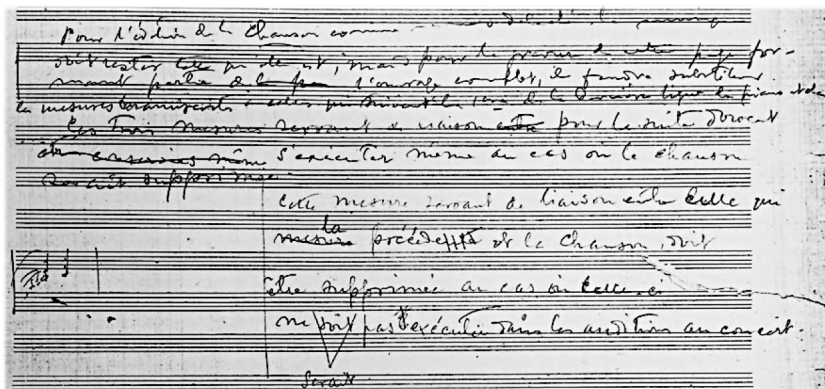 Pour l'édition de la Chanson comme la musique
doit rester telle qu'elle est, mais pour la gravure de cette page for-
mant partie de l'ouvrage complet, il faudra substituer
les mesures à celles qui suivent la 1ère de la dernière ligne de piano
Ces trois mesures servant de liaison entre pour la suite doivent
s'exécuter même au cas où la chanson
serait supprimée.
Cette mesure servant de liaison entre celle qui
mesure la précède et la Chanson, doit
être supprimée au cas où celle-ci
ne soit pas exécutée dans les auditions au concert.
serait